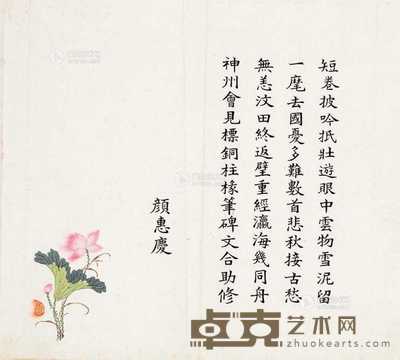 短卷披吟抵壯遊眼中雲物雪泥留
一麾去國憂多難數首悲秋接古愁
無恙汶田終返璧重經瀛海幾同舟
神州會見標銅柱椽筆碑文合助修
顏惠慶
卓克艺术网
www.zhuokearts.com